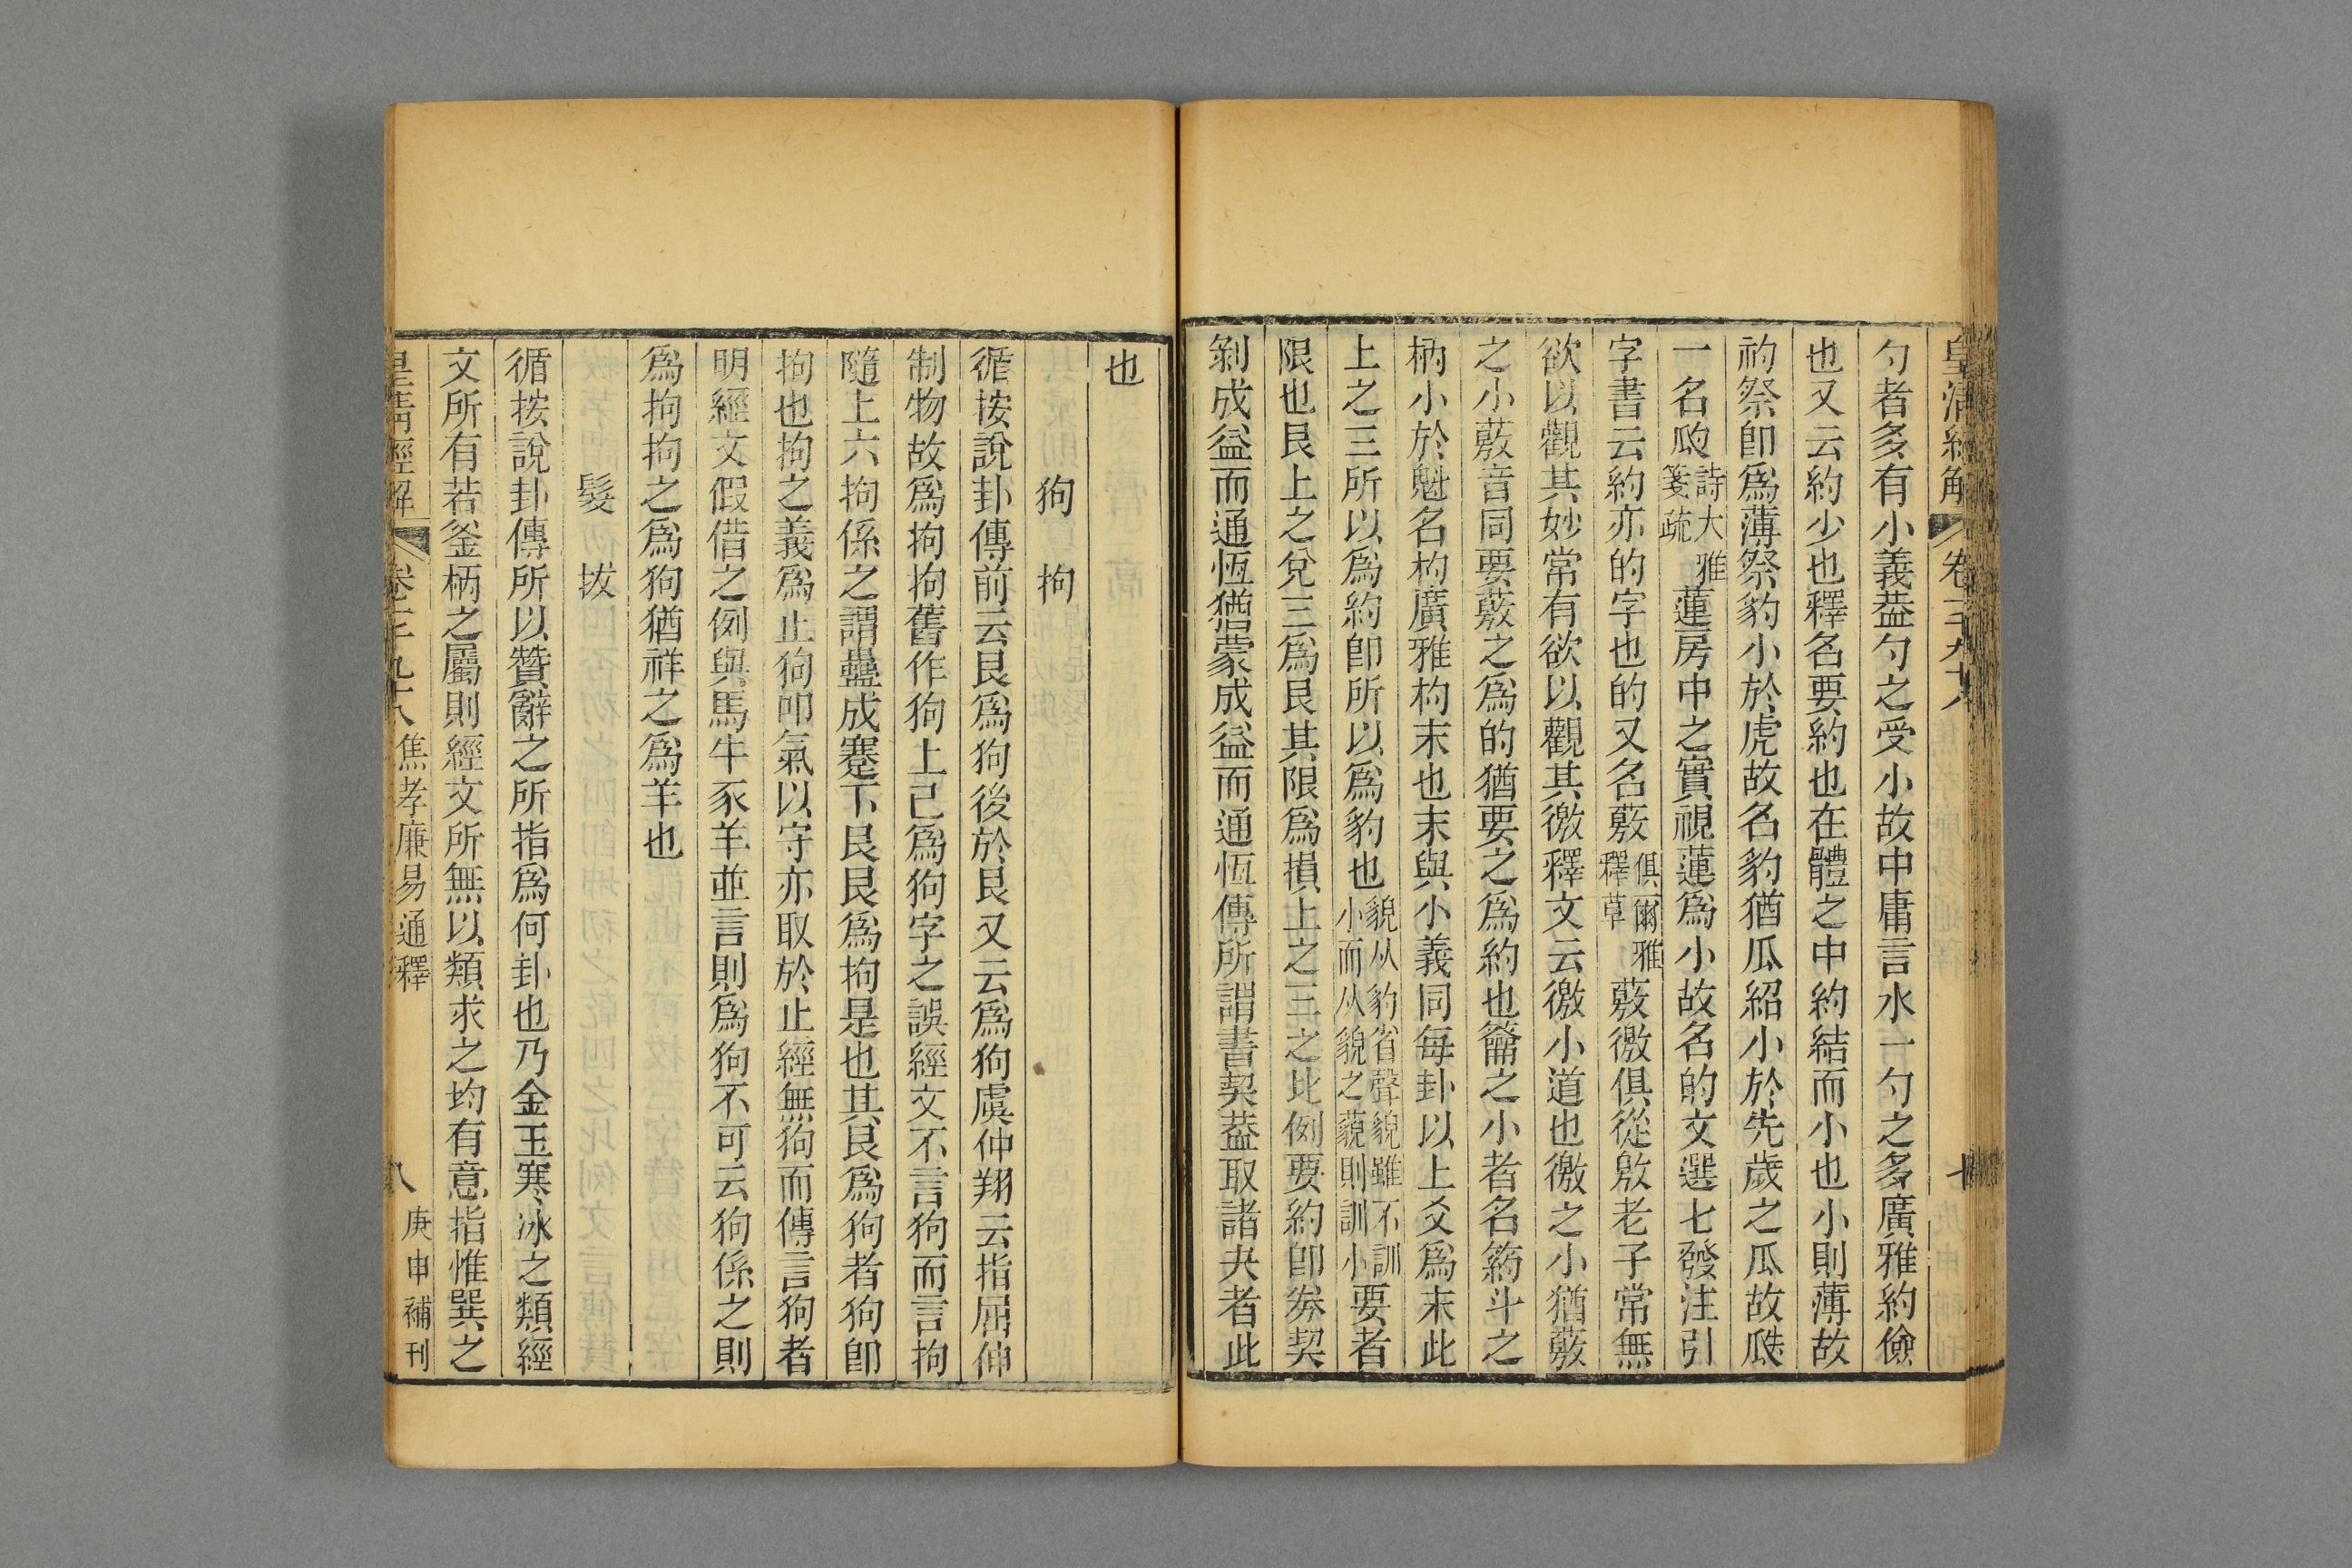 皇清經解 卷三九十八
勺者多有小義葢勺之受小故中庸言水一勺之多廣雅約儉
也又云約少也釋名要約也在體之中約結而小也小則薄故
礿祭卽爲薄祭豹小於虎故名豹猶瓜紹小於先歲之瓜故瓞
一名瓝詩大雅箋疏蓮房中之實視蓮爲小故名的文選七發注引
字書云約亦的字也的又名薂俱爾雅釋草薂徼俱從敫老子常無
欲以觀其妙常有欲以觀其徼釋文云徼小道也徼之小猶薂
之小薂音同要薂之爲的猶要之爲約也籥之小者名箹斗之
柄小於魁名杓廣雅杓末也末與小義同每卦以上爻爲末此
上之三所以爲約卽所以爲豹也貌从豹省聲貌雖不訓小而从貌之藐則訓小要者
限也艮上之兌三爲艮其限爲損上之三之比例要約卽劵契
剝成益而通恆猶蒙成益而通恆傳所謂書契葢取諸夬者此
也
狗 拘
循按說卦傳前云艮爲狗後於艮又云爲狗虞仲翔云指屈伸
制物故爲拘拘舊作狗上已爲狗字之誤經文不言狗而言拘
隨上六拘係之謂蠱成蹇下艮艮爲拘是也其艮爲狗者狗卽
拘也拘之義爲止狗叩氣以守亦取於止經無狗而傳言狗者
明經文假借之例與馬牛豕羊並言則爲狗不可云狗係之則
爲拘拘之爲狗猶祥之爲羊也
髮 拔
循按說卦傳所以贊辭之所指爲何卦也乃金玉寒冰之類經
文所有若釜柄之屬則經文所無以類求之均有意指惟巽之
皇清經解 卷三九十八 焦孝廉易通釋 八 庚申補刊